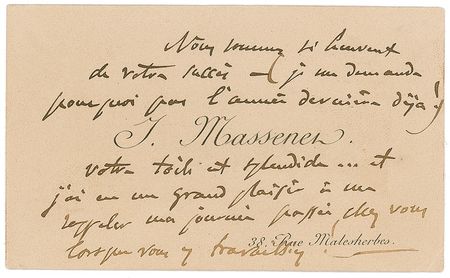 Nous sommes si heureux
de votre succès — (je me demande
pourquoi pas l'année dernière déjà!)
J. Massenet.
votre toile est splendide... et
j'ai eu un grand plaisir à me
rappeler ma journée passée chez vous
38, Rue Malesherbes.
lorsque vous y travailliez.